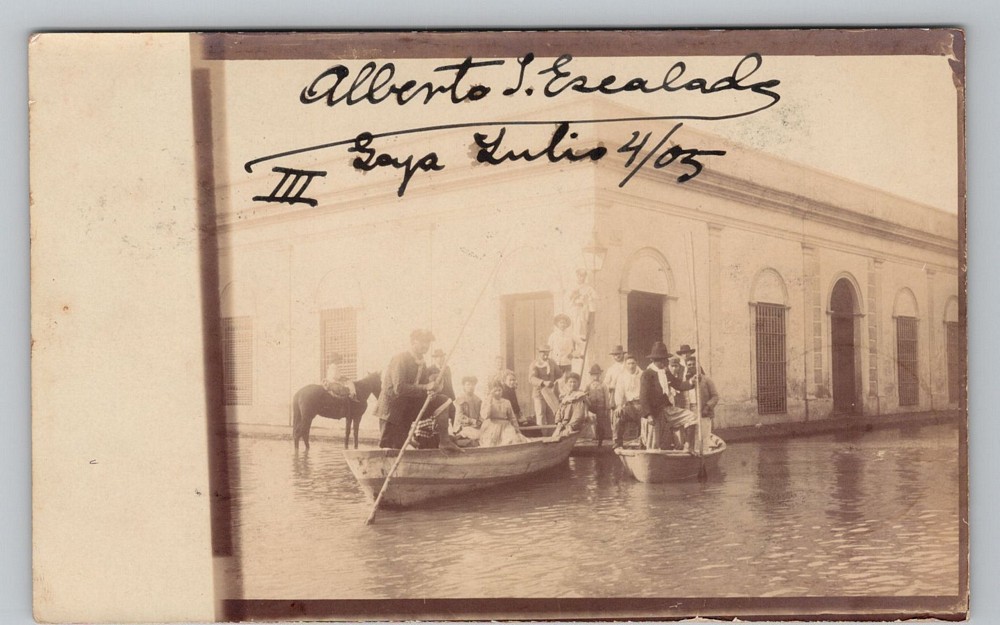 Alberto S. Escalada
Goya Julio 4/05
III